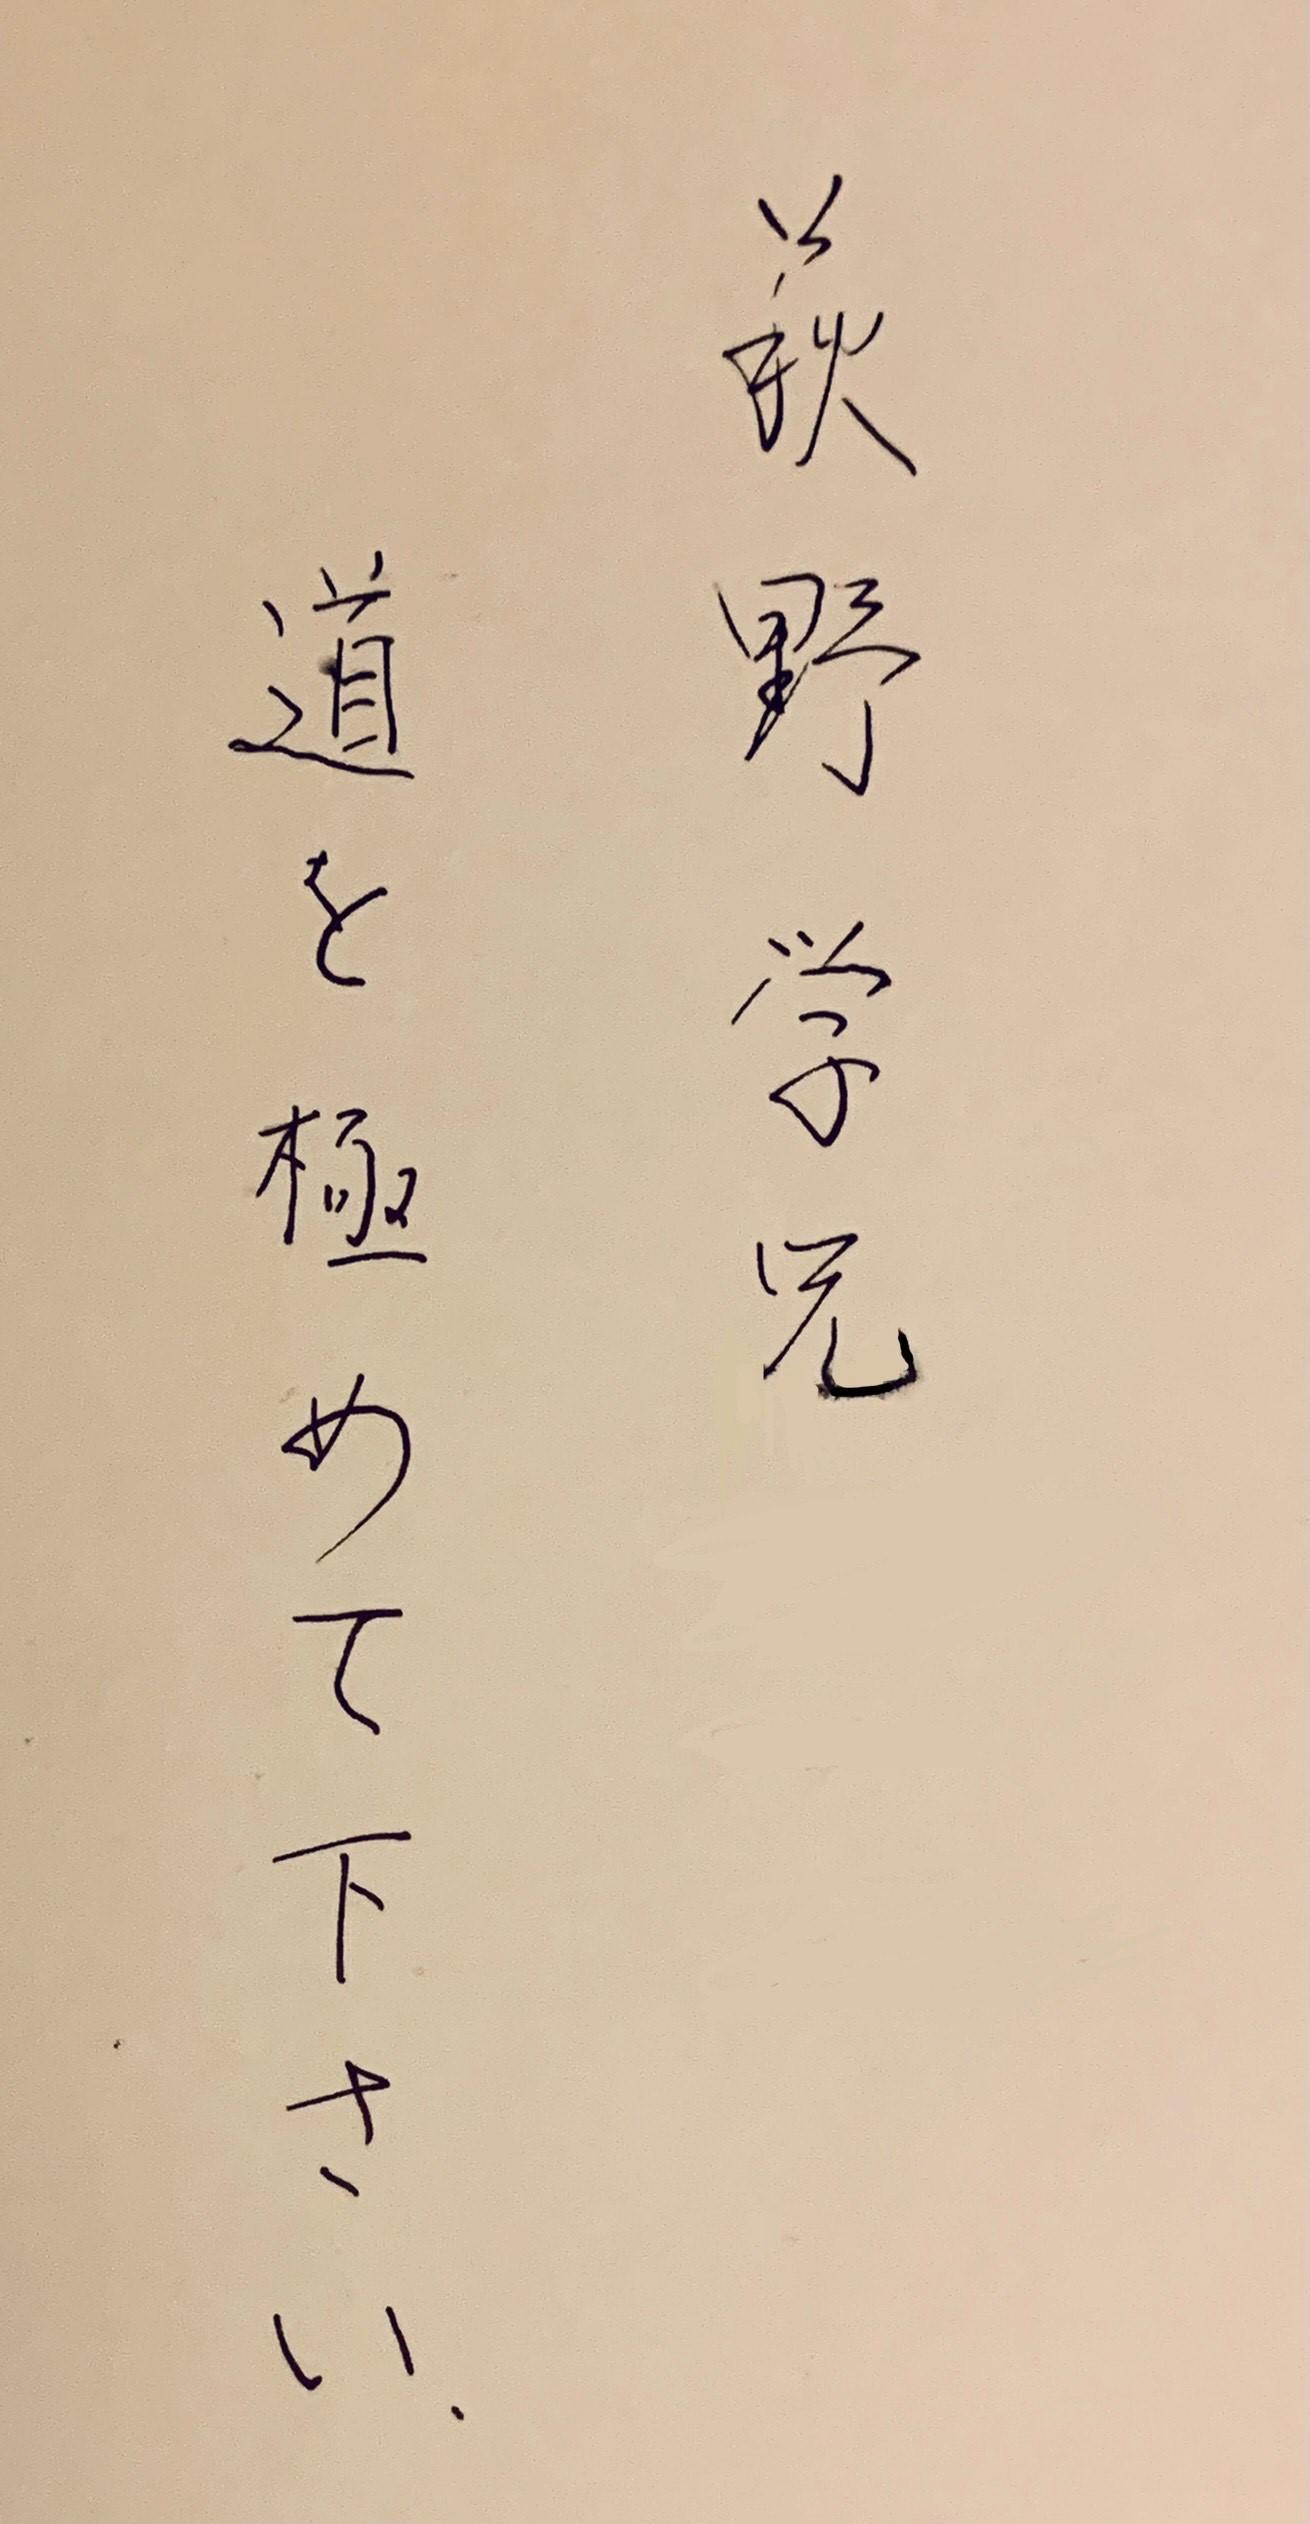 萩野学兄
道を極めて下さい.